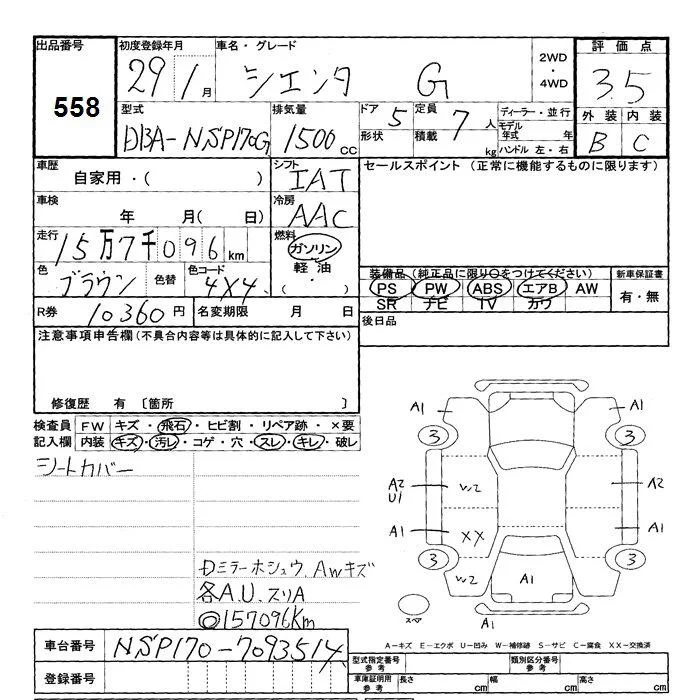 出品番号 初度登録年月 車名・グレード 2WD・4WD 評価点
558 29 1月 シエンタ G 3.5
型式 排気量 ドア 5 定員 7人 ディーラー・並行 外装 内装
DBA-NSP170G 1500cc 形状 積載 kg モデル年式 年 ハンドル 左・右 B C
車歴 シフト セールスポイント (正常に機能するものに限ります)
自家用・( ) IAT
車検 冷房
年 月( 日) AAC
走行 燃料
15万7千096km ガソリン
色 色替 色コード 軽油 装備品 (純正品に限り○をつけてください) 新車保証書
ブラウン 4X4 ・( ) PS PW ABS エアB AW 有・無
SR ナビ TV カワ
R券 10360円 名変期限 月 日 後日品
注意事項申告欄 (不具合内容等は具体的に記入して下さい)
修復歴 有 〔箇所 〕
検査員 FW キズ・飛石・ヒビ割・リペア跡・×要
記入欄 内装 キズ・汚レ・コゲ・穴・スレ・キレ・破レ
シートカバー
Dミラーホシュウ、AWキズ
各A.U.スリA
◎157096Km
A1 A1
3 3
A2 U1 W2 A2
A1 XX A1
3 W2 A1 3
スペア A1
A-キズ E-エクボ U-凹み W-補修跡 S-サビ C-腐食 XX-交換済
車台番号 NSP170-7093514
型式指定番号 参考 類別区分番号 参考
登録番号 車庫証明用 参考 長さ cm 幅 cm 高さ cm